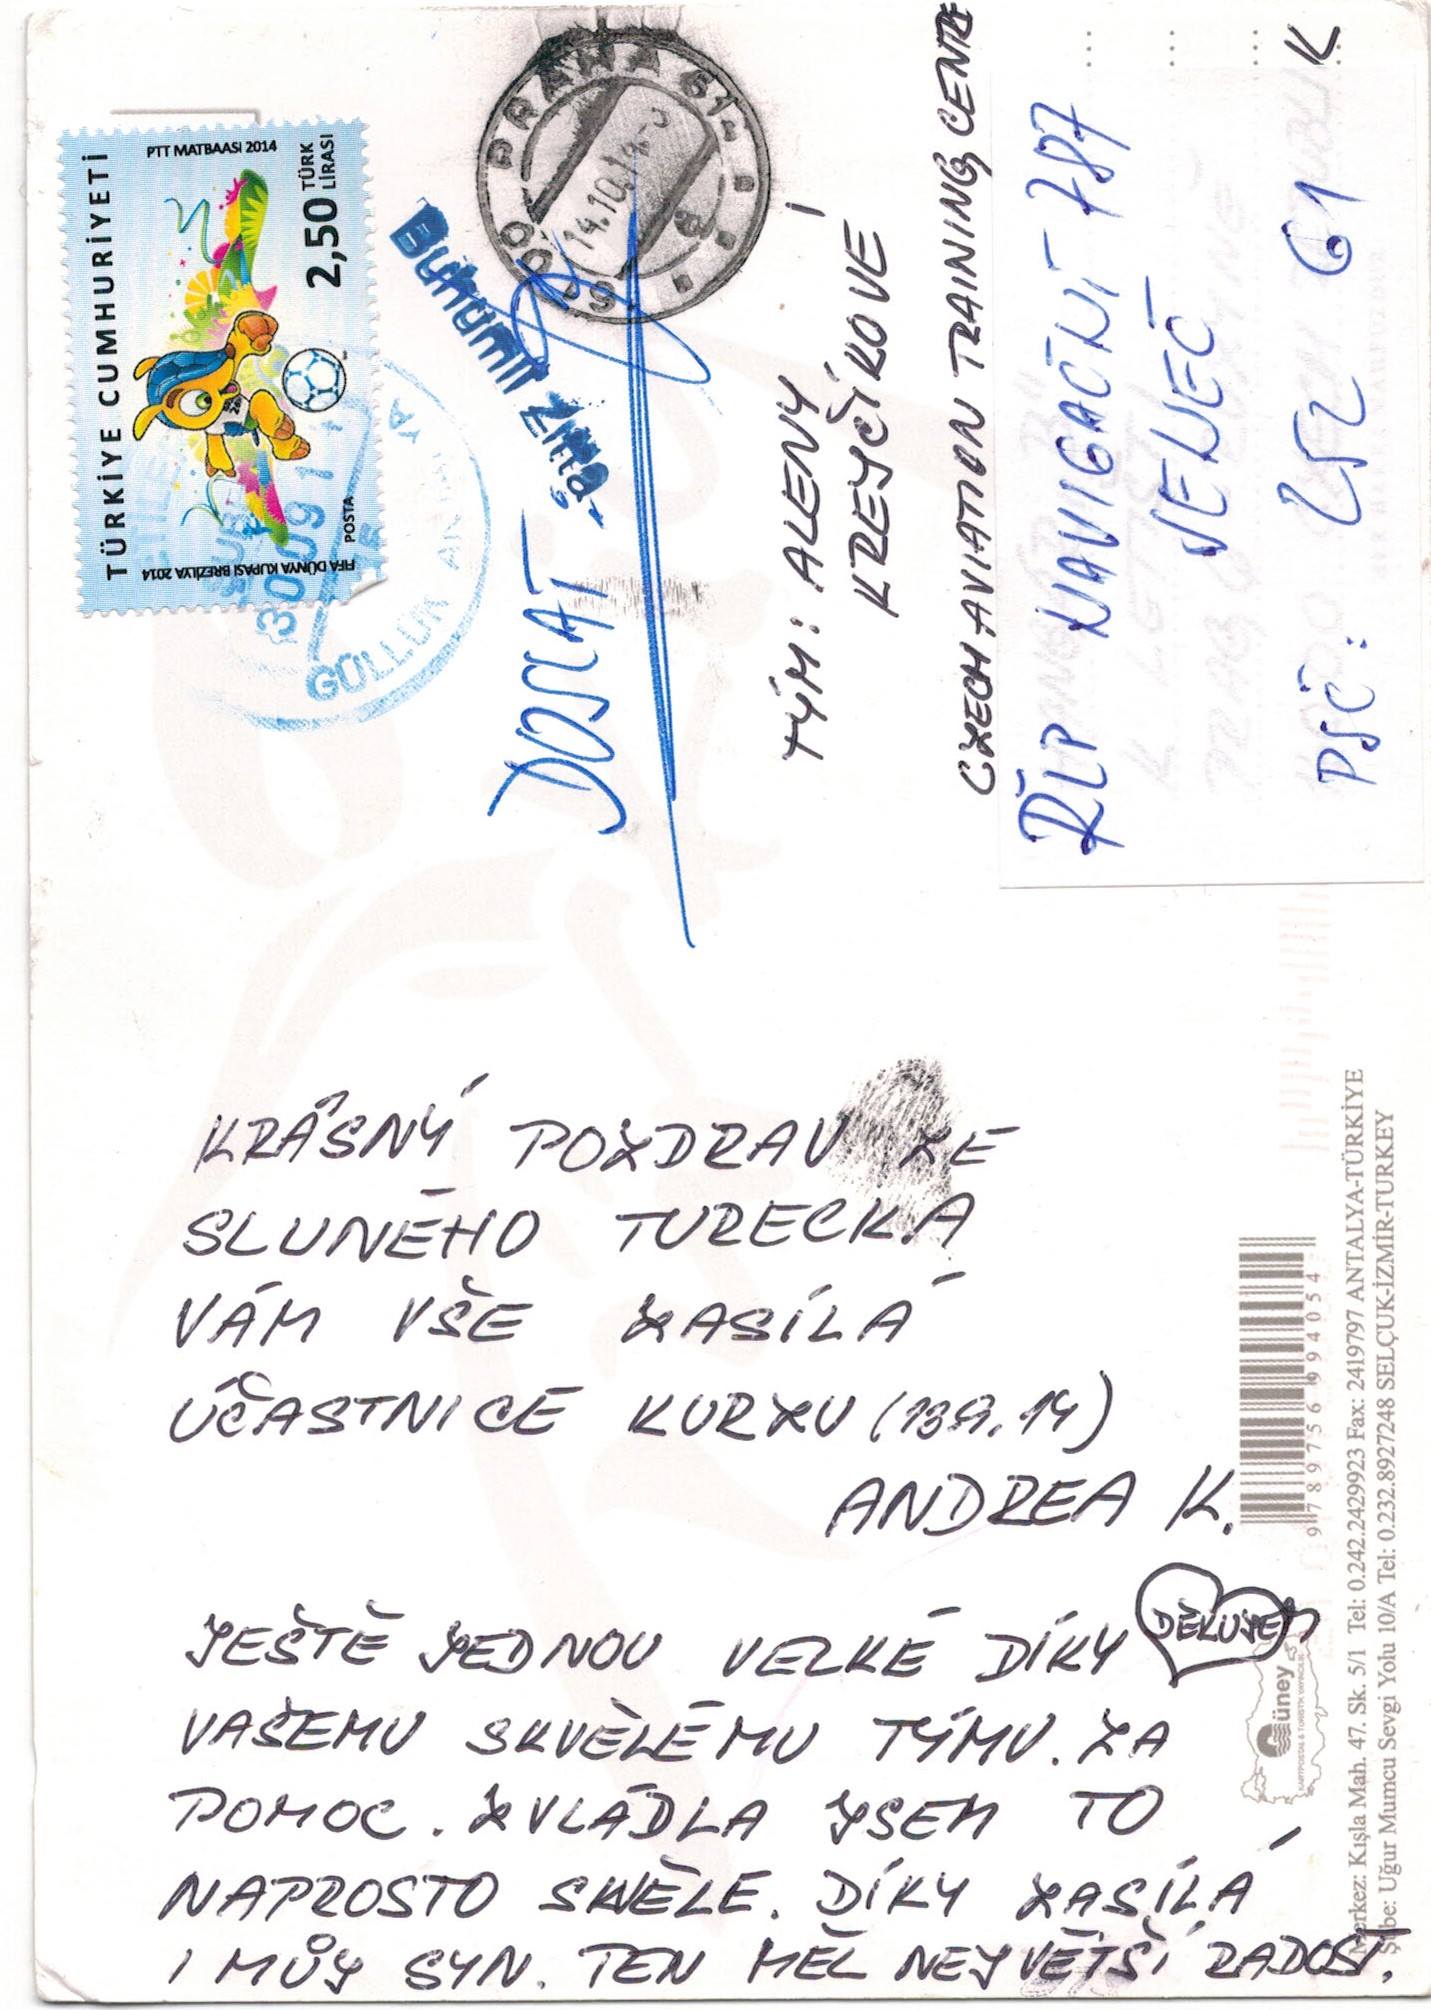 KRÁSNÝ POZDRAV ZE
SLUNÉHO TURECKA
VÁM VŠE ZASÍLÁ
ÚČASTNICE KURZU (13.9.14)
ANDREA K.
JEŠTĚ JEDNOU VELKÉ DÍKY
DĚKUJEM
VAŠEMU SKVĚLÉMU TÝMU. ZA
POMOC. ZVLÁDLA JSEM TO
NAPROSTO SKVĚLE. DÍKY ZASÍLÁ
I MŮJ SYN. TEN MĚL NEJVĚTŠÍ RADOST.
TÜRKİYE CUMHURİYETİ
PTT MATBAASI 2014
2,50 TÜRK LİRASI
POSTA
FIFA DÜNYA KUPASI BREZİLYA 2014
30 09 1
GÜLLÜK
PRAHA 61
14.10.14
Bohumil Zima
DOSLAT
TÝM: ALENY
KREJČÍKOVÉ
CZECH AVIATION TRAINING CENTRE
ŘLP NAVIGAČNÍ 787
JENEČ
PSČ: 252 61
K
9 789756 994054
Güney
KARTPOSTAL & TURİSTİK YAYINCILIK
Merkez: Kışla Mah. 47. Sk. 5/1 Tel: 0.242.2429923 Fax: 2419797 ANTALYA-TÜRKİYE
Şube: Uğur Mumcu Sevgi Yolu 10/A Tel: 0.232.8927248 SELÇUK-İZMİR-TURKEY